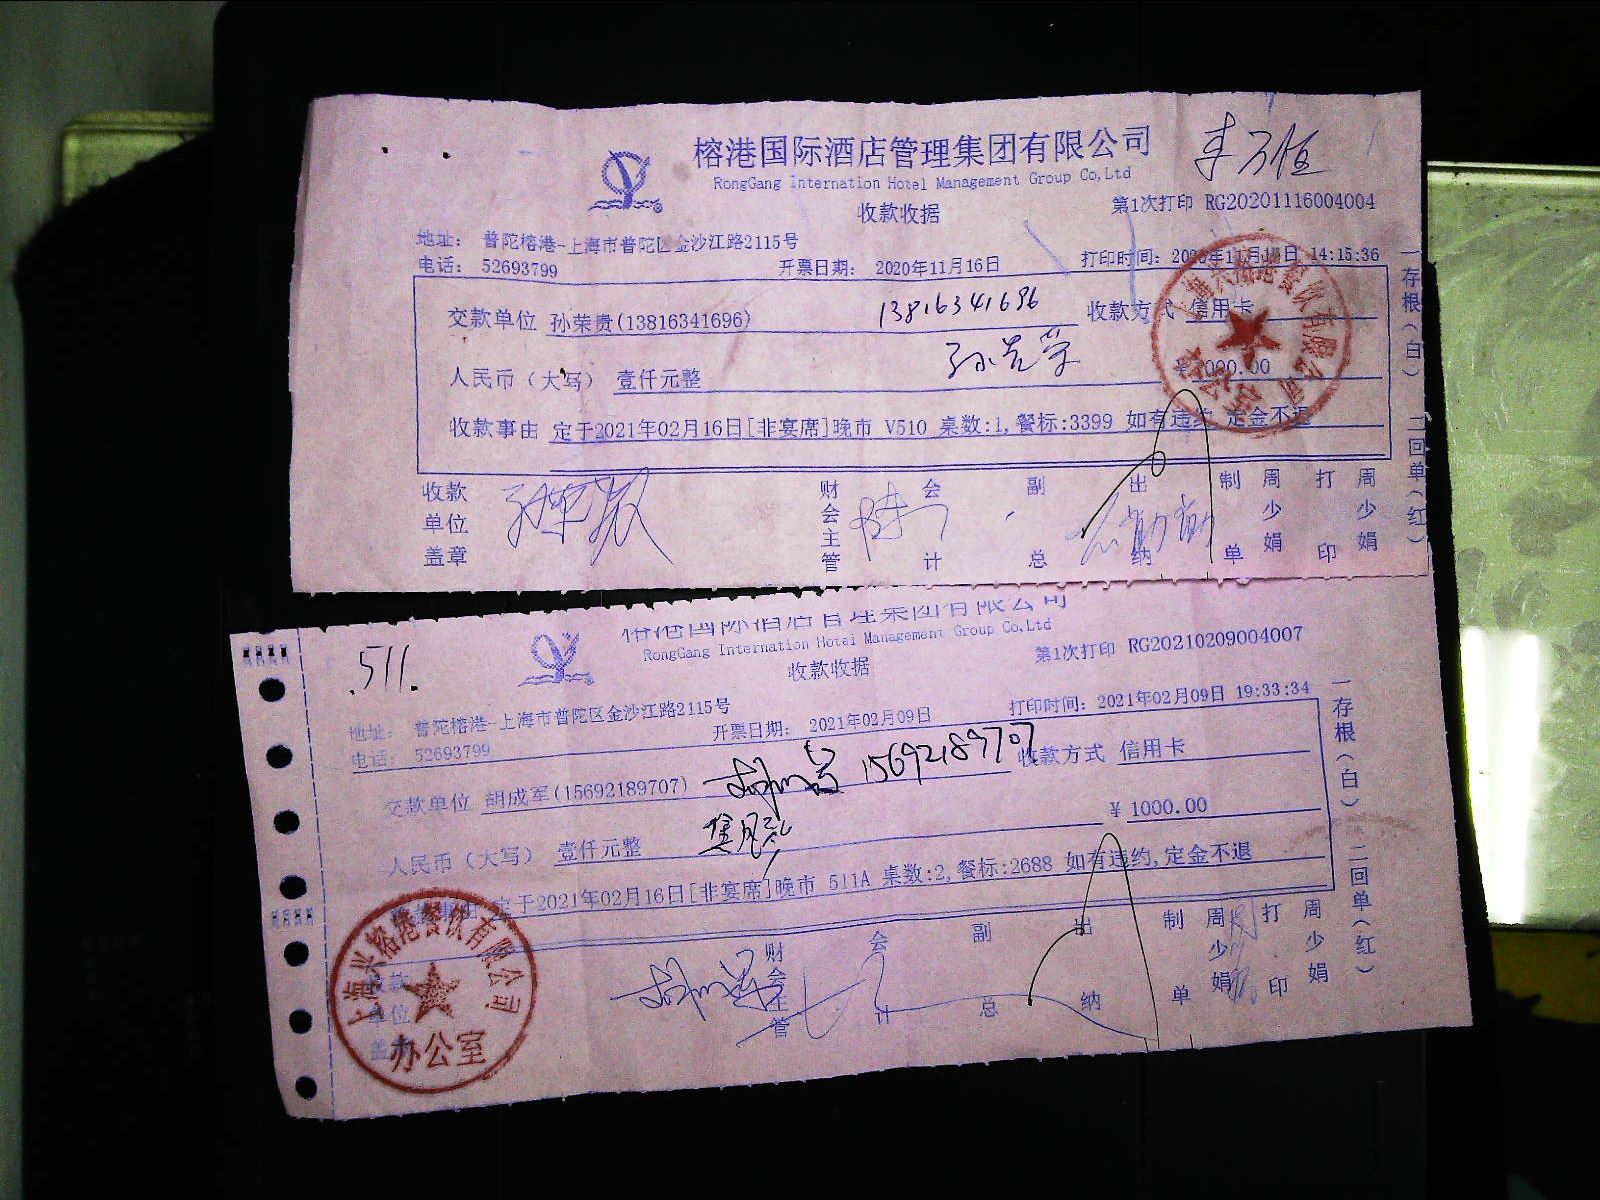 榕港国际酒店管理集团有限公司
RongGang Internation Hotel Management Group Co,Ltd
收款收据
第1次打印 RG20201116004004
地址: 普陀榕港-上海市普陀区金沙江路2115号
电话: 52693799 开票日期: 2020年11月16日 打印时间: 2020年11月16日 14:15:36
交款单位 孙荣贵(13816341696) 13816341696 收款方式 信用卡
人民币（大写） 壹仟元整 ¥1000.00
收款事由 定于2021年02月16日[非宴席]晚市 V510 桌数:1,餐标:3399 如有违约,定金不退
收款单位盖章 财会主管 会计 副总 出纳 制单 周少娟 打印 周少娟
一存根(白) 二回单(红)
上海兴榕港餐饮有限公司
办公室
511.
榕港国际酒店管理集团有限公司
RongGang Internation Hotel Management Group Co,Ltd
收款收据
第1次打印 RG20210209004007
地址: 普陀榕港-上海市普陀区金沙江路2115号
电话: 52693799 开票日期: 2021年02月09日 打印时间: 2021年02月09日 19:33:34
交款单位 胡成军(15692189707) 15692189707 收款方式 信用卡
人民币（大写） 壹仟元整 ¥1000.00
收款事由 定于2021年02月16日[非宴席]晚市 511A 桌数:2,餐标:2688 如有违约,定金不退
收款单位盖章 财会主管 会计 副总 出纳 制单 周少娟 打印 周少娟
一存根(白) 二回单(红)
上海兴榕港餐饮有限公司
办公室